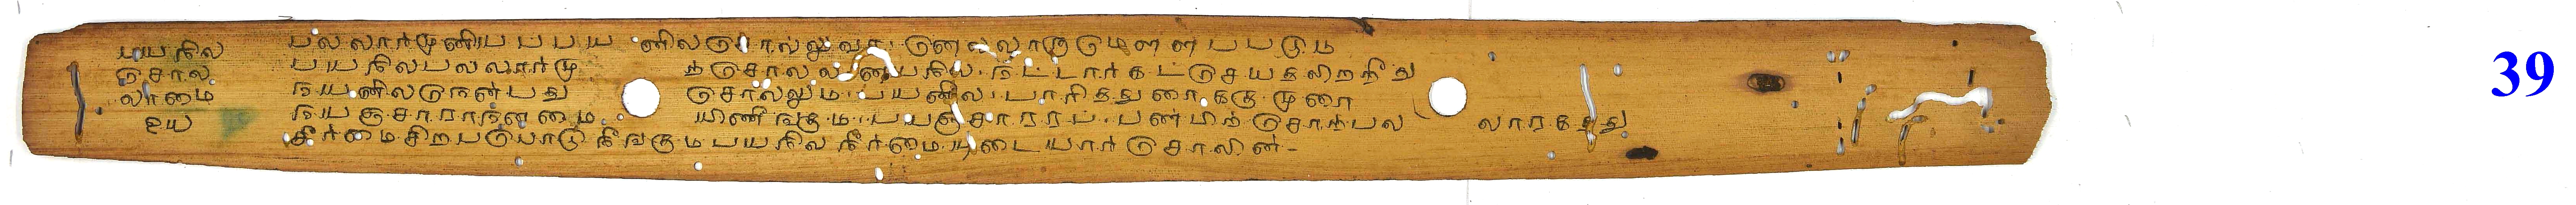 பயநில பலலார்முனியபபய னிலசொலலுவா னெலலாருமெளளபபடும
சொல பயநிலபலலார்மு ற்சொலல னயநில நட்டார்கட்செயதலிறறீது
லாமை நயனிலனென்பது சொல்லும பயனில பாரித்துரைககு முரை
உய நயஞசாராநனமை யினீஙகும பயஞசாரரப பண்பிற்சொற்பல லாரகதது
சீர்மைசிறபபொடுநீஙகும பயநில நீர்மையுடையார்சொலின்-
39